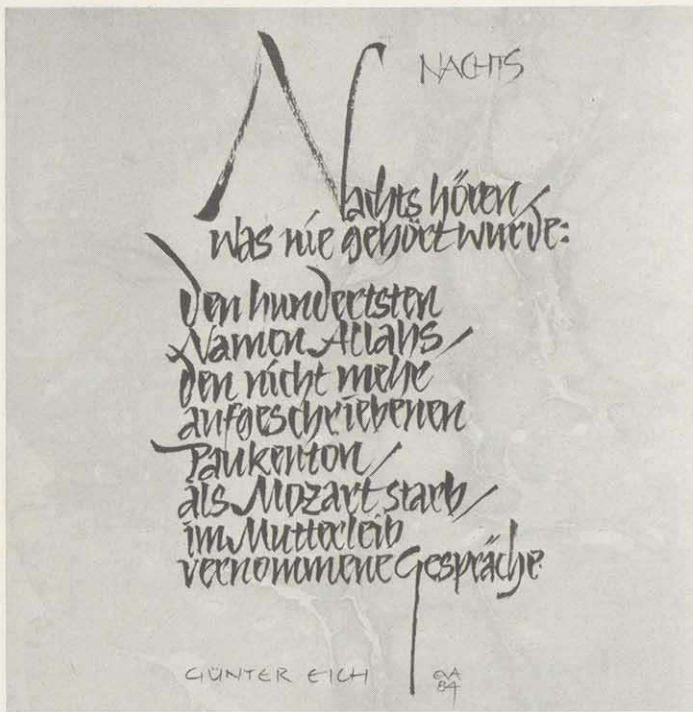 NACHTS
Nachts hören/
was nie gehört wurde:
Den hundertsten
Namen Allahs/
den nicht mehr
aufgeschriebenen
Paukenton/
als Mozart starb/
im Mutterleib
vernommene Gespräche
GÜNTER EICH
EVA
84